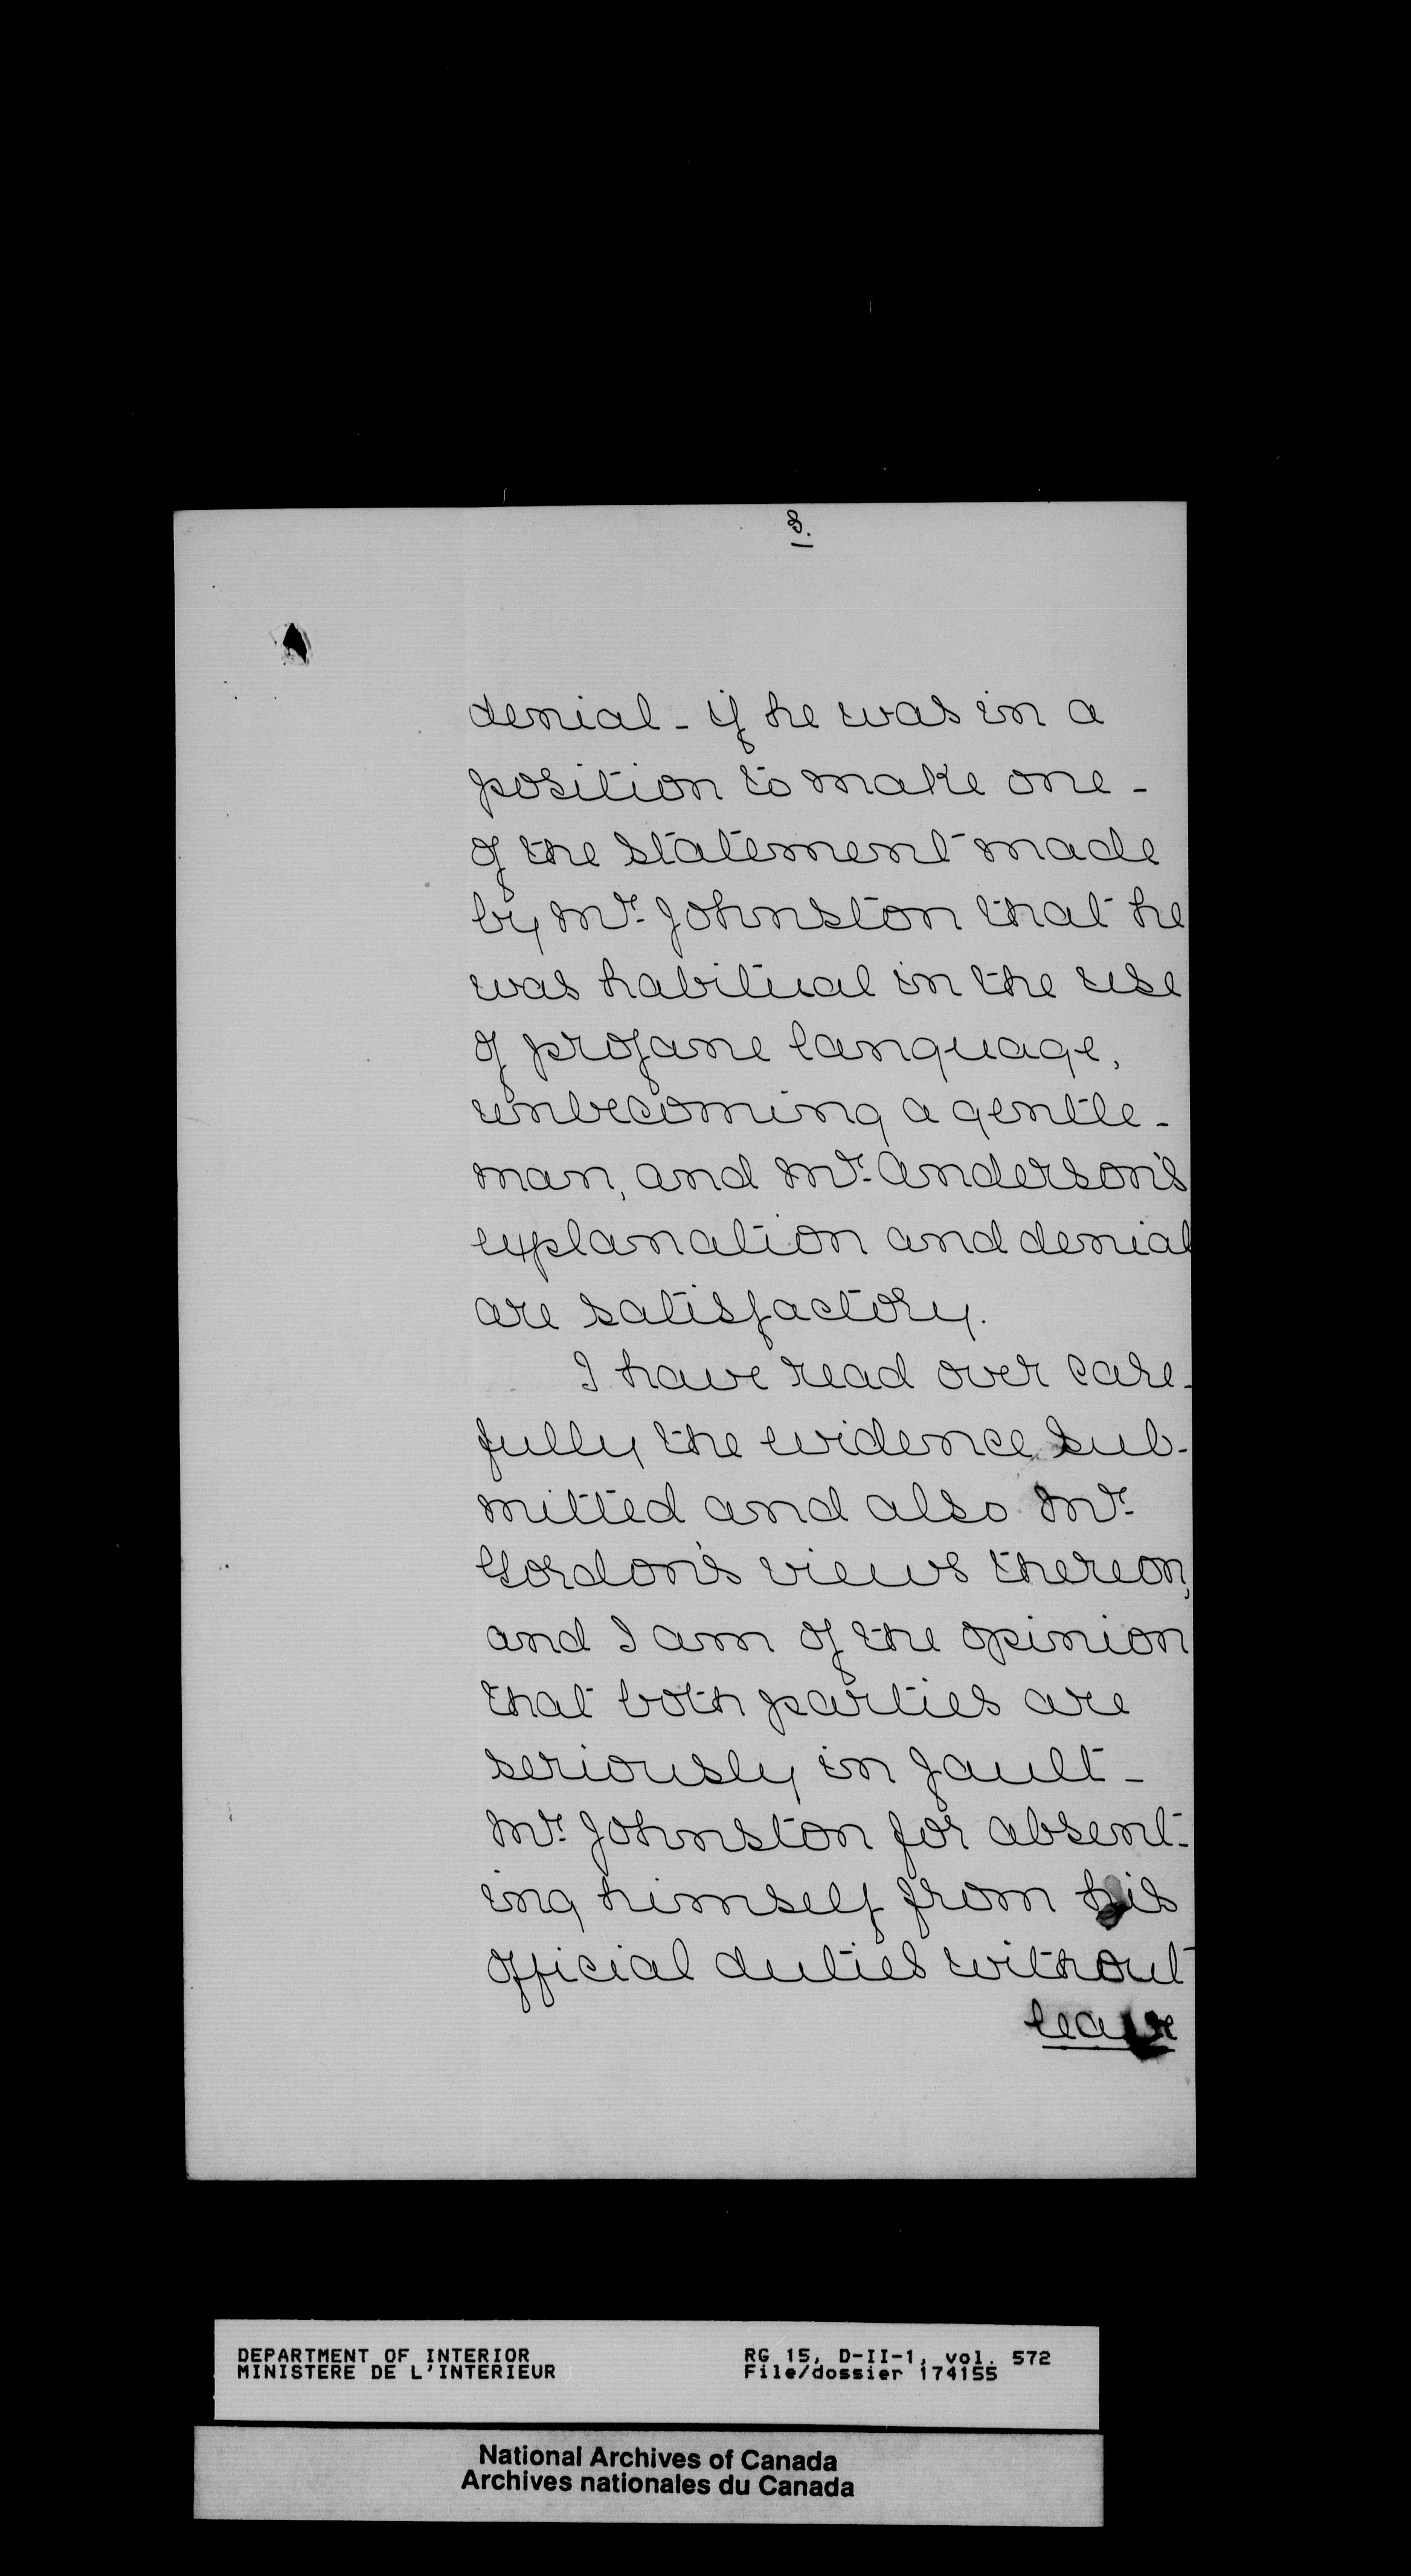 3.
denial - if he was in a
position to make one -
of the statement made
by Mr. Johnston that he
was habitual in the use
of profane language,
unbecoming a gentle-
man, and Mr. Anderson's
explanation and denial
are satisfactory.
I have read over care-
fully the evidence sub-
mitted and also Mr.
Gordon's views thereon,
and I am of the opinion
that both parties are
seriously in fault -
Mr. Johnston for absent-
ing himself from his
official duties without
leave
DEPARTMENT OF INTERIOR
MINISTERE DE L'INTERIEUR
RG 15, D-II-1, vol. 572
File/dossier 174155
National Archives of Canada
Archives nationales du Canada